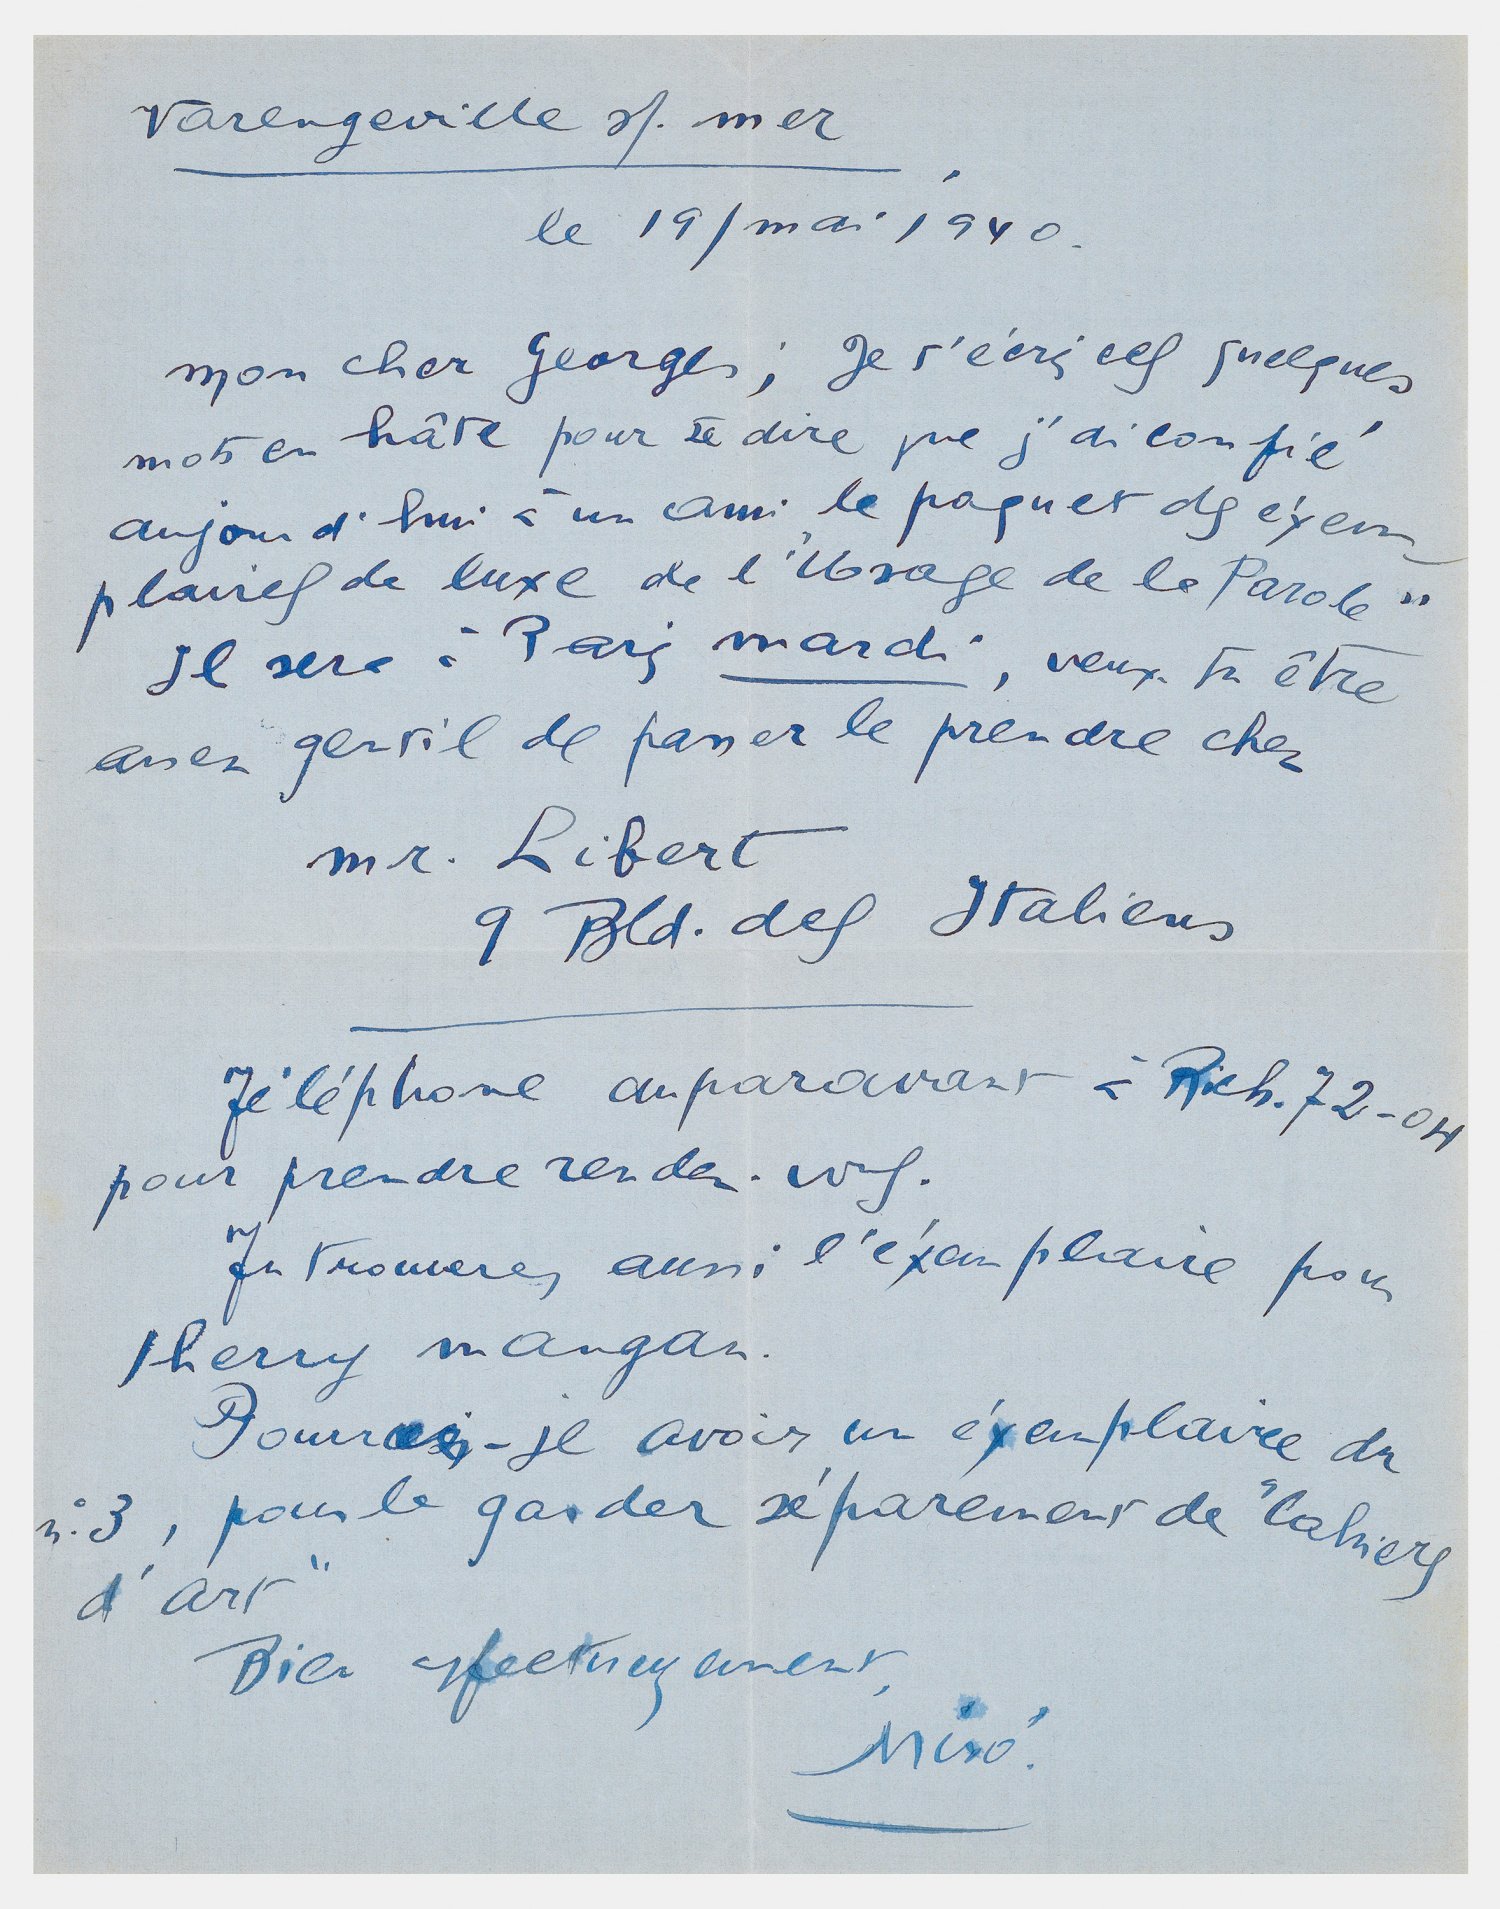 Varengeville s/. mer
le 19/mai/1940.
Mon cher Georges; Je t'écris ces quelques
mots en hâte pour te dire que j'ai confié
aujourd'hui à un ami le paquet des éxem-
plaires de luxe de l'"Usage de la Parole"
Il sera à Paris mardi, veux-tu être
assez gentil de passer le prendre chez
Mr. Libert
9 Bld. des Italiens
Téléphone auparavant à Rich. 72-04
pour prendre rendez-vous.
Tu trouveras aussi l'éxemplaire pour
Sherry Mangan.
Pourrais-je avoir un éxemplaire du
n° 3, pour le garder séparement de "Cahiers
d'art"
Bien affectueusement,
Miró.